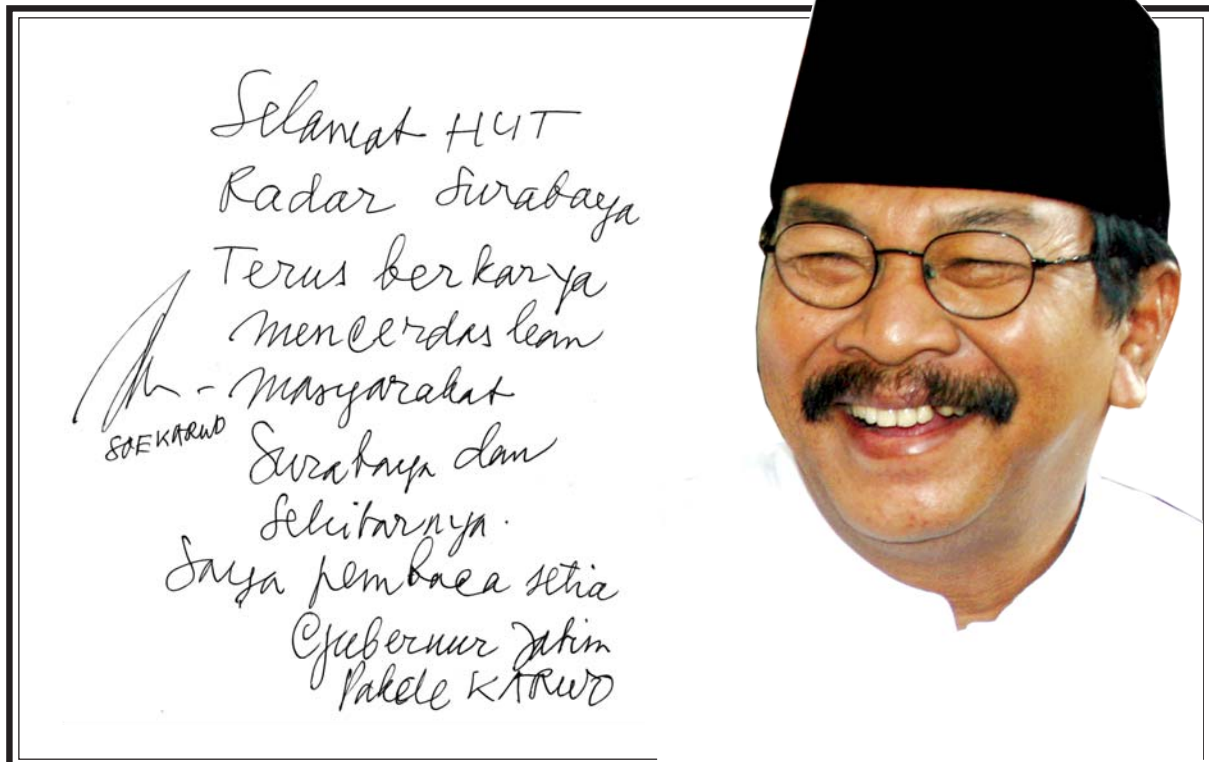 Selamat HUT
Radar Surabaya
Terus berkarya
mencerdaskan
masyarakat
SOEKARWO
Surabaya dan
Sekitarnya.
Saya pembaca setia
Gubernur Jatim
Pakde KARWO